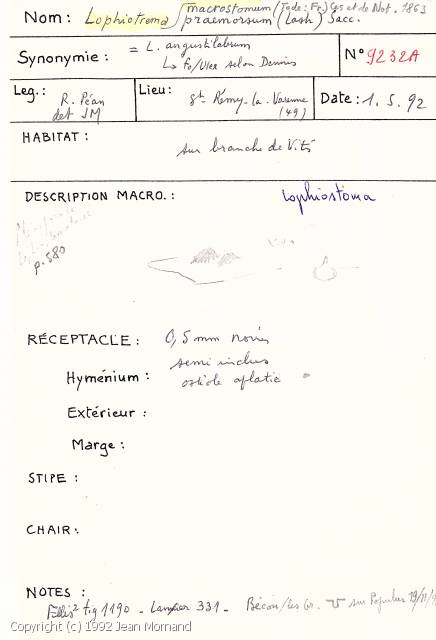 Nom : Lophiotrema macrostomum (Tode : Fr.) Ces et de Not. 1863
praemorsum (Lash) Sacc.
Synonymie : = L. angustilabrum
↳ fo/Ulex selon Dennis
N° 9232A
Leg. : R. Péan
det JM
Lieu : St Rémy-la-Varenne
(49)
Date : 1. 5. 92
HABITAT :
sur branche de Vitis
DESCRIPTION MACRO. : Lophiostoma
p. 580
RÉCEPTACLE : 0,5 mm noirs
semi inclus
Hyménium : ostiole aplatie
Extérieur :
Marge :
STIPE :
CHAIR :
NOTES :
Ellis² fig 1190 - 331 - sur Populus
Copyright (c) 1992 Jean Mornand